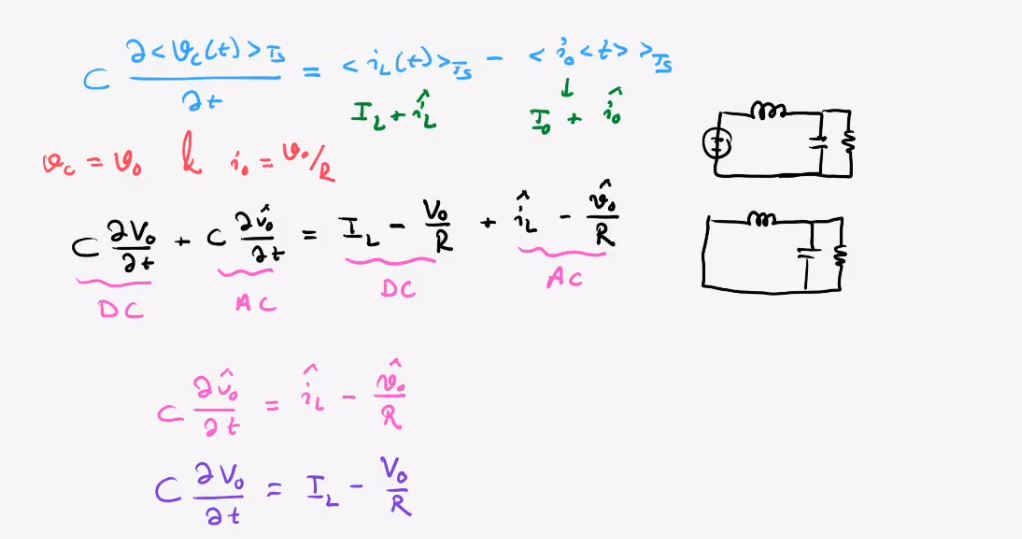 C ∂<v_c(t)>_Ts / ∂t = <i_L(t)>_Ts − <i_o<t>>_Ts
I_L + î_L
↓
I_o + î_o
v_c = v_o & i_o = v_o/R
C ∂V_o/∂t + C ∂v̂_o/∂t = I_L − V_o/R + î_L − v̂_o/R
DC AC DC AC
C ∂v̂_o/∂t = î_L − v̂_o/R
C ∂V_o/∂t = I_L − V_o/R